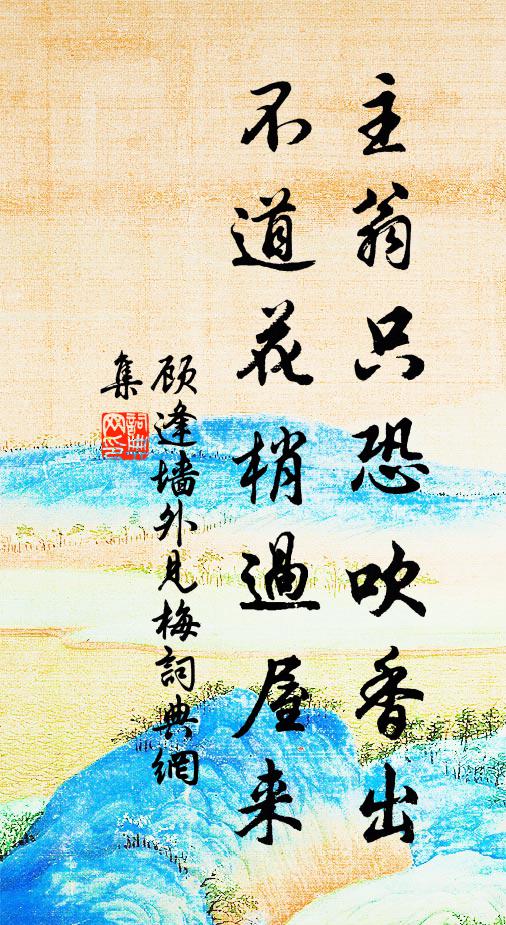 主翁只恐吹香出
不道花梢過屋来
顾逢墙外見梅詞典網
集
詞典